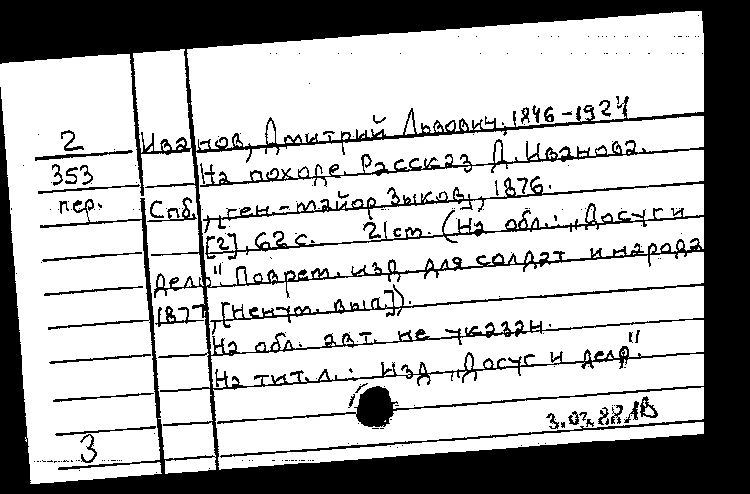 2 Иванов, Дмитрий Львович, 1846-1924
353 На походе. Рассказ Д. Иванова.
пер. Спб., [ген.-майор Зыков], 1876.
[2], 62 с. 21 ст. (На обл.: „Досуг и
дело". Поврем. изд. для солдат и народа
1877, [Ненум. вып.]).
На обл. авт. не указан.
На тит. л.: изд. „Досуг и дело".
3.03.88
3